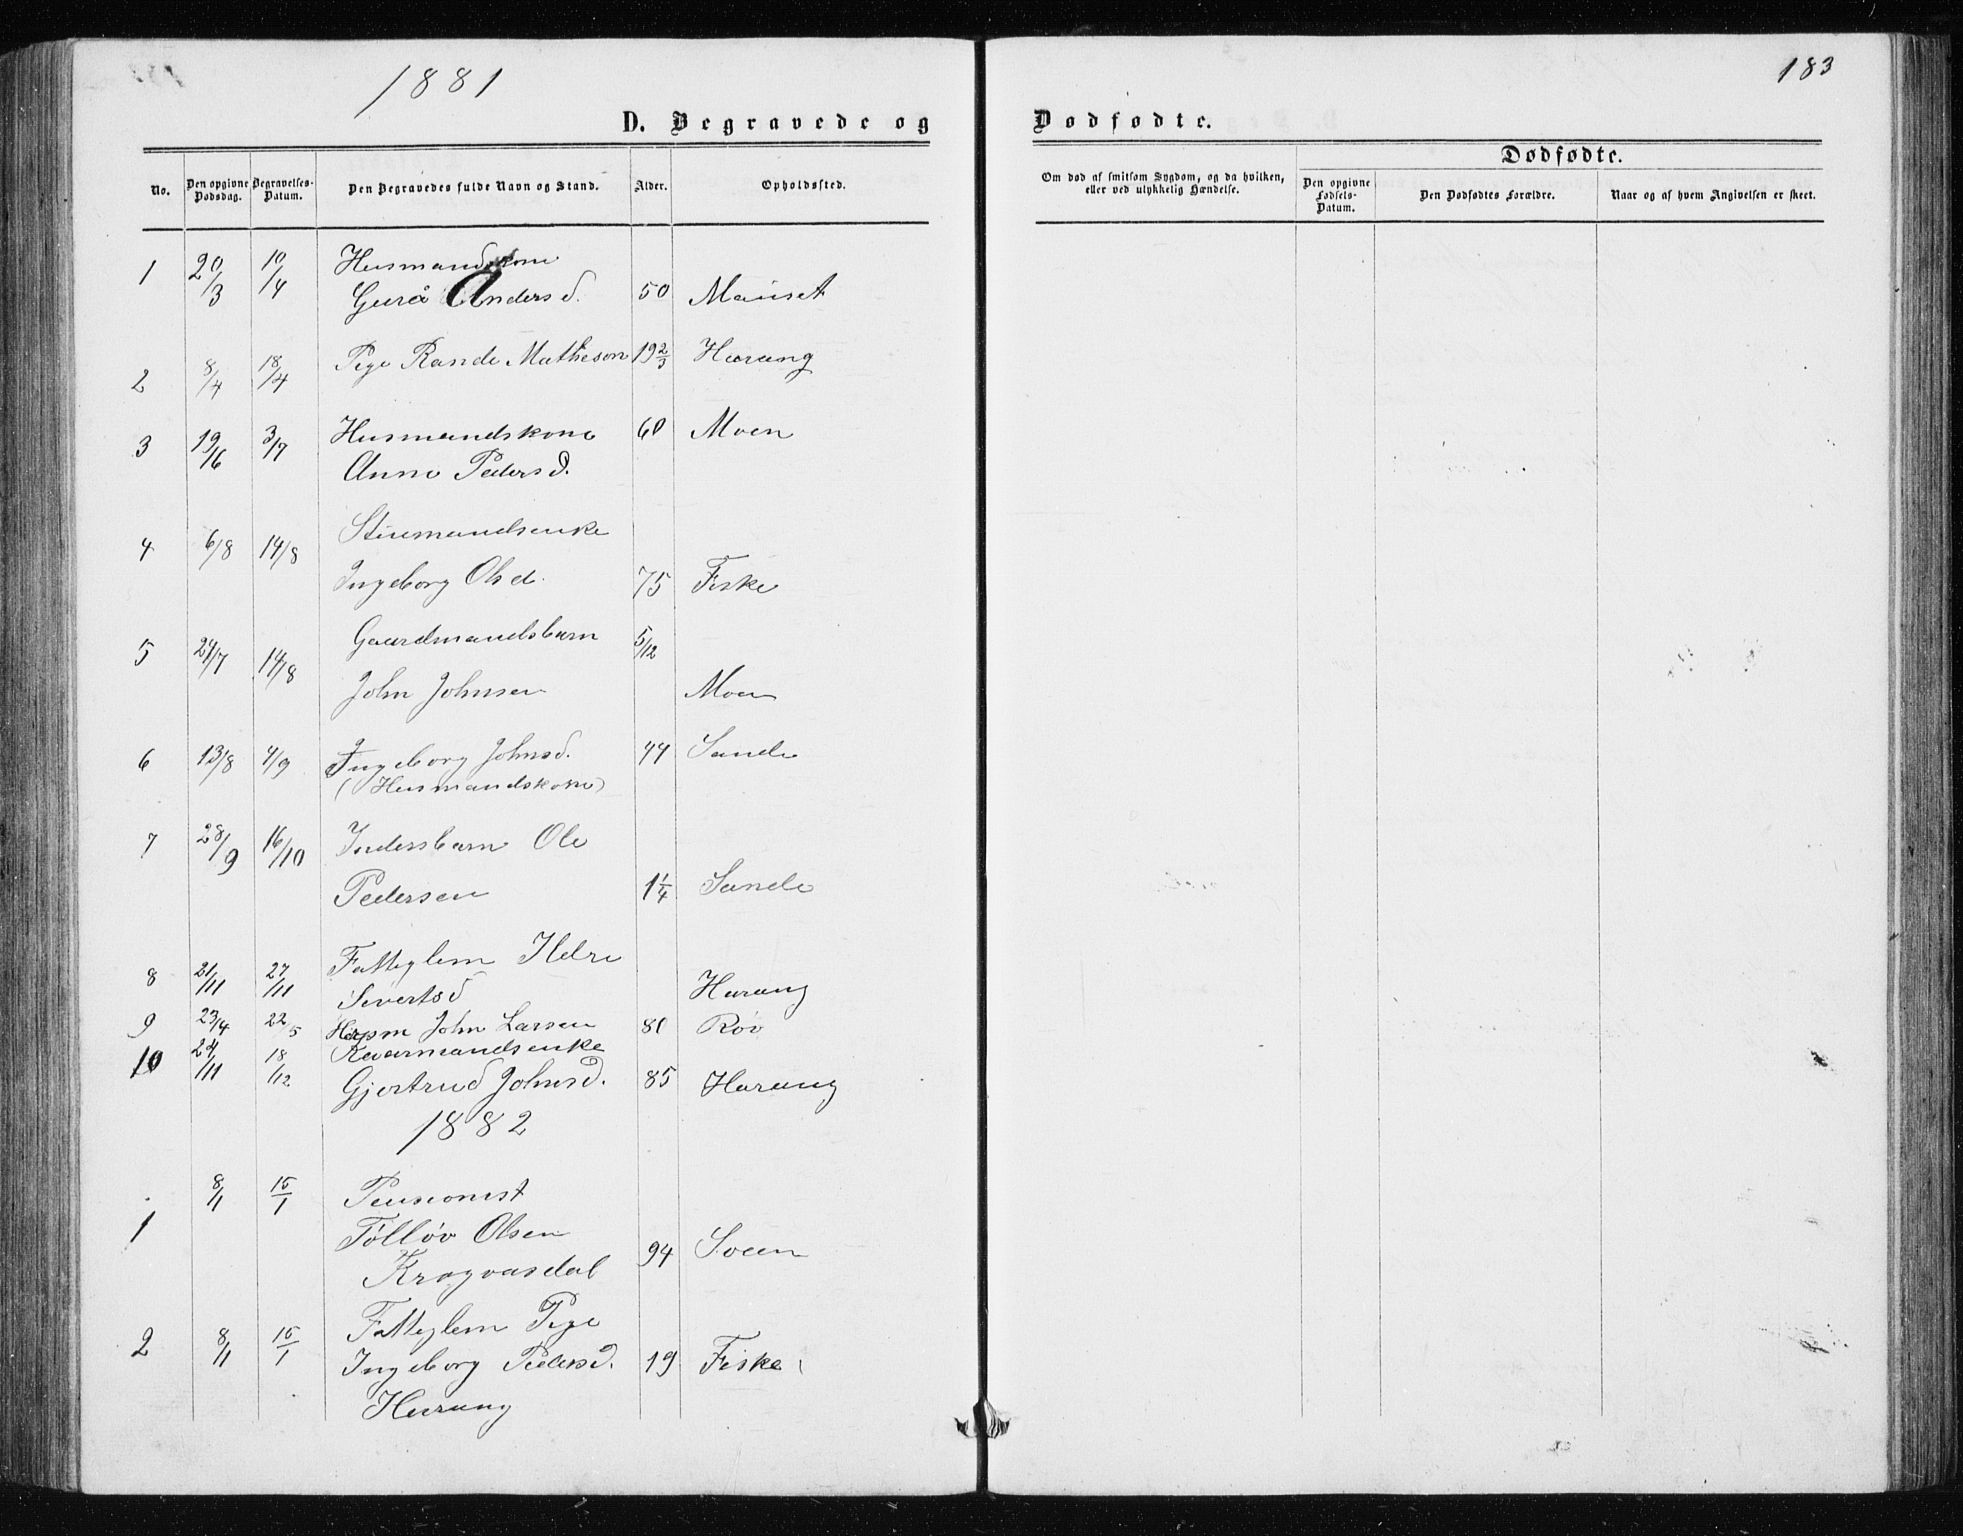 1881
183
D. Begravede og Dødfødte.
No.
Den opgivne Dødsdag.
Begravelses-Datum.
Den Begravedes fulde Navn og Stand.
Alder.
Opholdssted.
Om død af smitsom Sygdom, og da hvilken, eller ved ulykkelig Hændelse.
Dødfødte.
Den opgivne Fødsels-Datum.
Den Dødfødtes Forældre.
Naar og af hvem Angivelsen er skeet.
1 20/3 10/4 Husmandskone
Guru Andersd. 50 Mauset
2 8/4 18/4 Pige Rande Matheson 19 2/3 Harang
3 19/6 3/7 Husmandskone 60 Moen
Anne Pedersd.
4 6/8 14/8
Ingeborg Olsd. 75 Fiske
5 24/7 14/8 Gaardmandsbarn 5/12
John Johnsen Moen
6 13/8 4/9 Ingeborg Johnsd. 44 Sande
(Husmandskone)
7 28/9 16/10 Indersbarn Ole
Pedersen 1 1/4 Sande
8 21/11 27/11 Fatteglem
Sivertsd Harang
9 23/4 22/5 John Larsen 80 Røv
10 24/11 18/12 Kaarmandsenke
Gjertrud Johnsd. 85 Harang
1882
1 8/1 15/1 Pensionist
Tølløv Olsen
Kragvasdal 94 Soeen
2 8/1 15/1 Fatteglem Pige
Ingeborg Pedersd. 19 Fiske
Harang